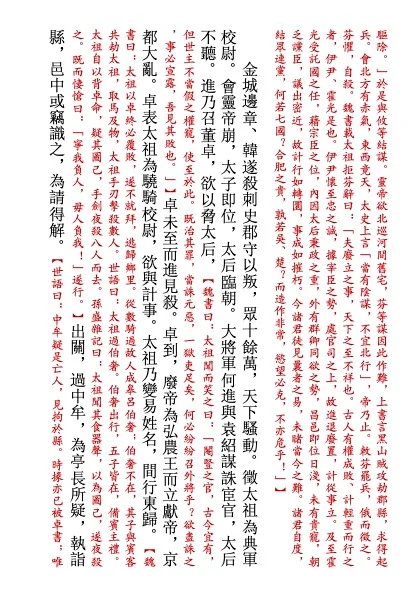 驅除。」於是與攸等結謀。靈帝欲北巡河間舊宅,芬等謀因此作難,上書言黑山賊攻劫郡縣,求得起
兵。會北方有赤氣,東西竟天,太史上言「當有陰謀,不宜北行」,帝乃止。敕芬罷兵,俄而徵之。
芬懼,自殺。魏書載太祖拒芬辭曰:「夫廢立之事,天下之至不祥也。古人有權成敗、計輕重而行之
者,伊尹、霍光是也。伊尹懷至忠之誠,據宰臣之勢,處官司之上,故進退廢置,計從事立。及至霍
光受託國之任,藉宗臣之位,內因太后秉政之重,外有群卿同欲之勢,昌邑即位日淺,未有貴寵,朝
乏讜臣,議出密近,故計行如轉圜,事成如摧朽。今諸君徒見曩者之易,未睹當今之難。諸君自度,
結眾連黨,何若七國?合肥之貴,孰若吳、楚?而造作非常,欲望必克,不亦危乎!」】
金城邊章、韓遂殺刺史郡守以叛,眾十餘萬,天下騷動。徵太祖為典軍
校尉。會靈帝崩,太子即位,太后臨朝。大將軍何進與袁紹謀誅宦官,太后
不聽。進乃召董卓,欲以脅太后,【魏書曰:太祖聞而笑之曰:「閹豎之官,古今宜有,
但世主不當假之權寵,使至於此。既治其罪,當誅元惡,一獄吏足矣,何必紛紛召外將乎?欲盡誅之
,事必宣露,吾見其敗也。」】卓未至而進見殺。卓到,廢帝為弘農王而立獻帝,京
都大亂。卓表太祖為驍騎校尉,欲與計事。太祖乃變易姓名,間行東歸。【魏
書曰:太祖以卓終必覆敗,遂不就拜,逃歸鄉里。從數騎過故人成皋呂伯奢;伯奢不在,其子與賓客
共劫太祖,取馬及物,太祖手刃擊殺數人。世語曰:太祖過伯奢。伯奢出行,五子皆在,備賓主禮。
太祖自以背卓命,疑其圖己,手劍夜殺八人而去。孫盛雜記曰:太祖聞其食器聲,以為圖己,遂夜殺
之。既而悽愴曰:「寧我負人,毋人負我!」遂行。】出關,過中牟,為亭長所疑,執詣
縣,邑中或竊識之,為請得解。【世語曰:中牟疑是亡人,見拘於縣。時掾亦已被卓書;唯